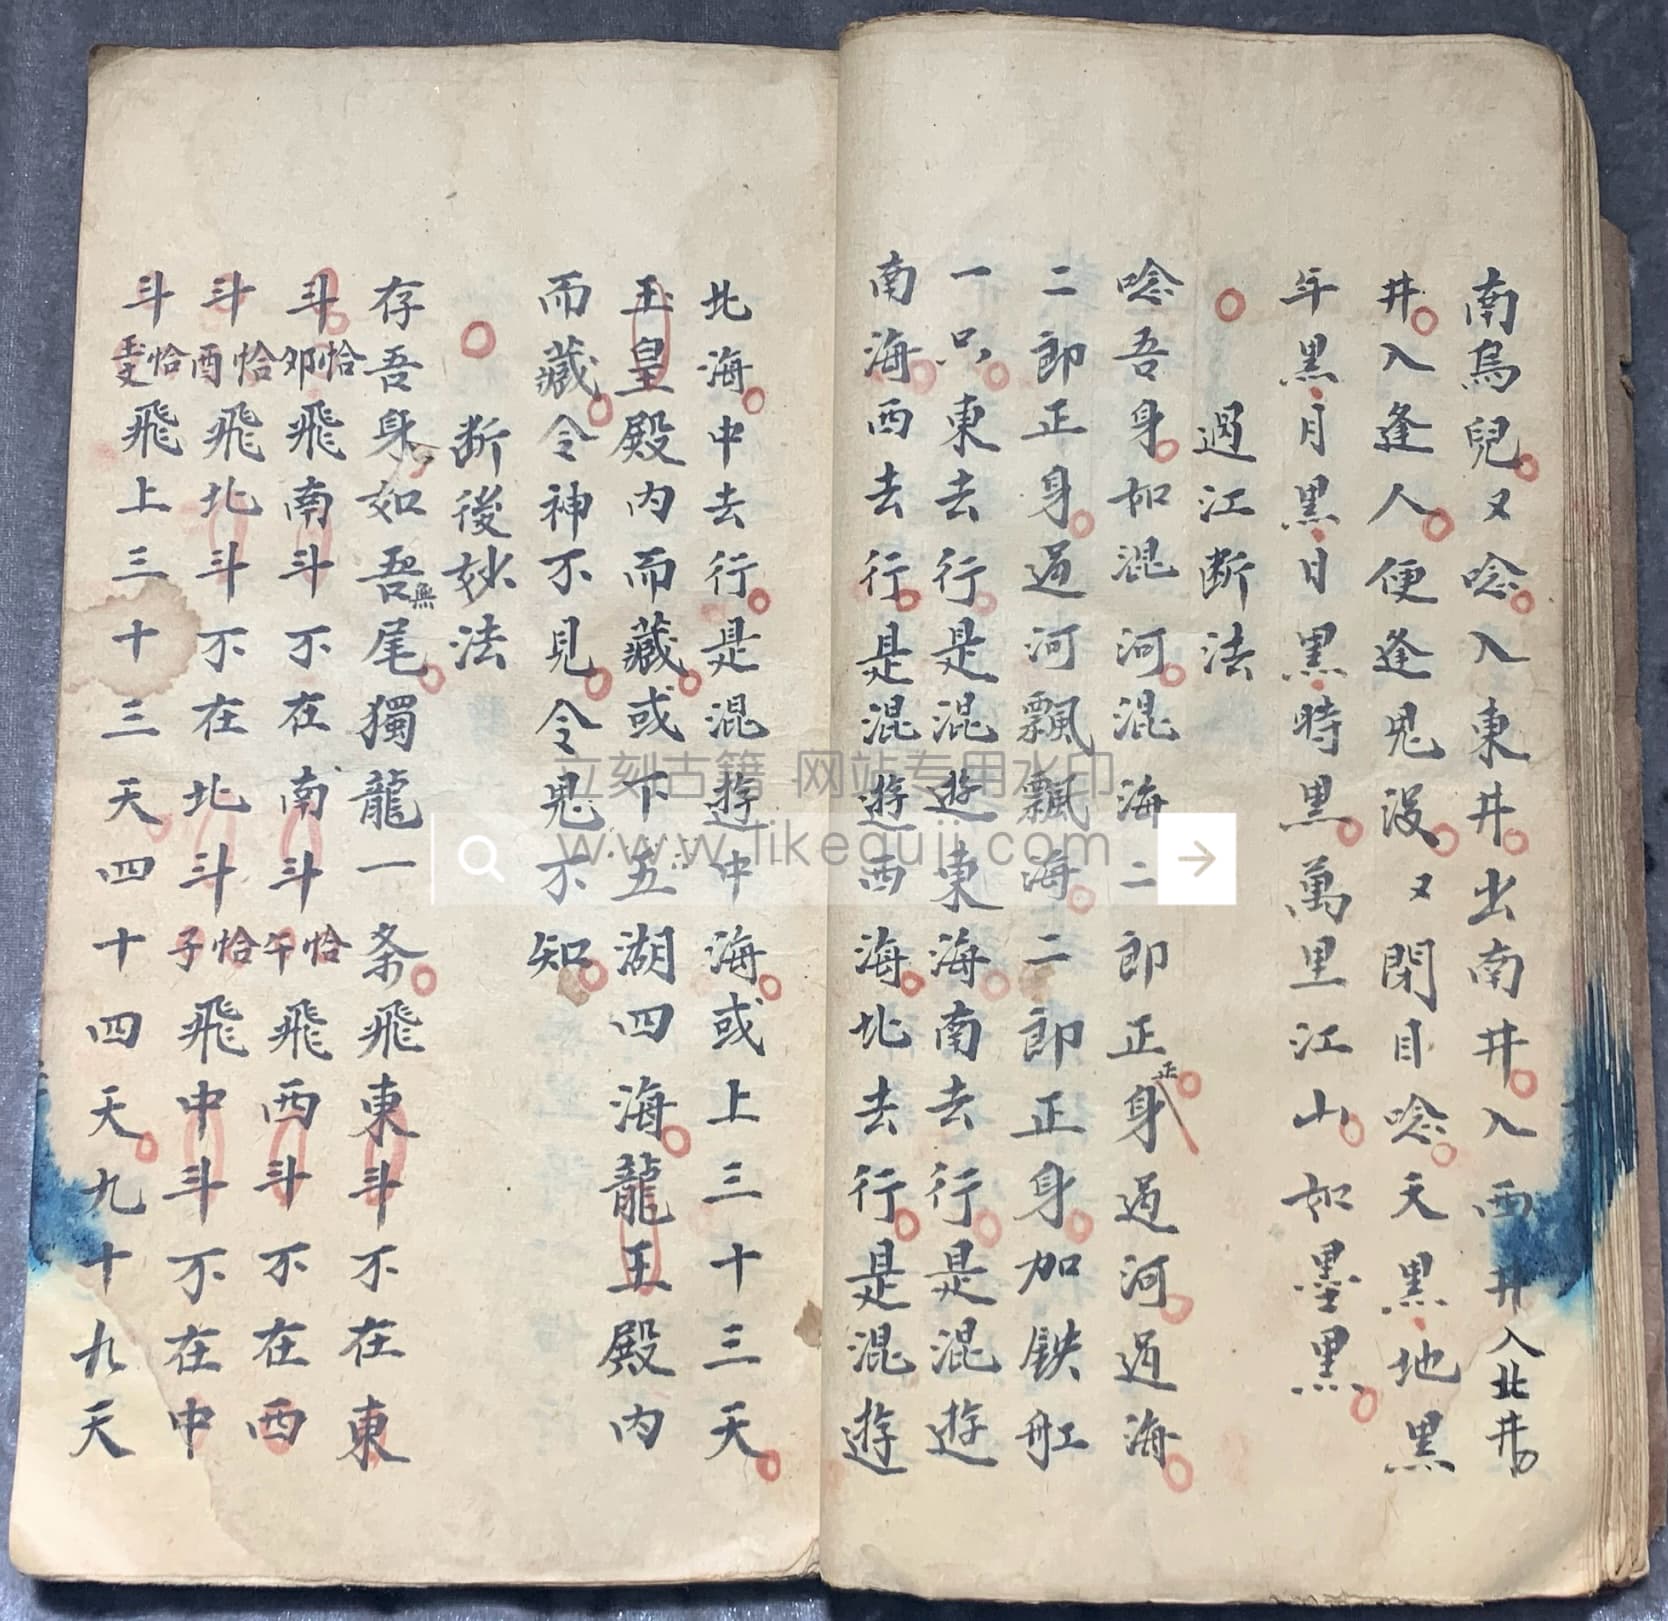 南烏兒又唸入東井出南井入西井入北井
井入逢人便逢鬼沒又閉目唸天黑地黑
年黑月黑日黑時黑萬里江山如墨黑
過江断法
唸吾身如混河混海二郎正身過河過海
正
二郎正身過河飄飄海二郎正身加鉄舡
一只東去行是混遊東海南去行是混遊
南海西去行是混遊西海北去行是混遊
北海中去行是混遊中海或上三十三天
玉皇殿內而藏或下五湖四海龍王殿內
而藏令神不見令鬼不知
断後妙法
存吾身如吾無尾獨龍一条飛東斗不在東
斗恰卯飛南斗不在南斗恰午飛西斗不在西
斗恰酉飛北斗不在北斗恰子飛中斗不在中
斗恰飛上三十三天四十四天九十九天
立刻古籍 网站专用水印
www.likeguji.com